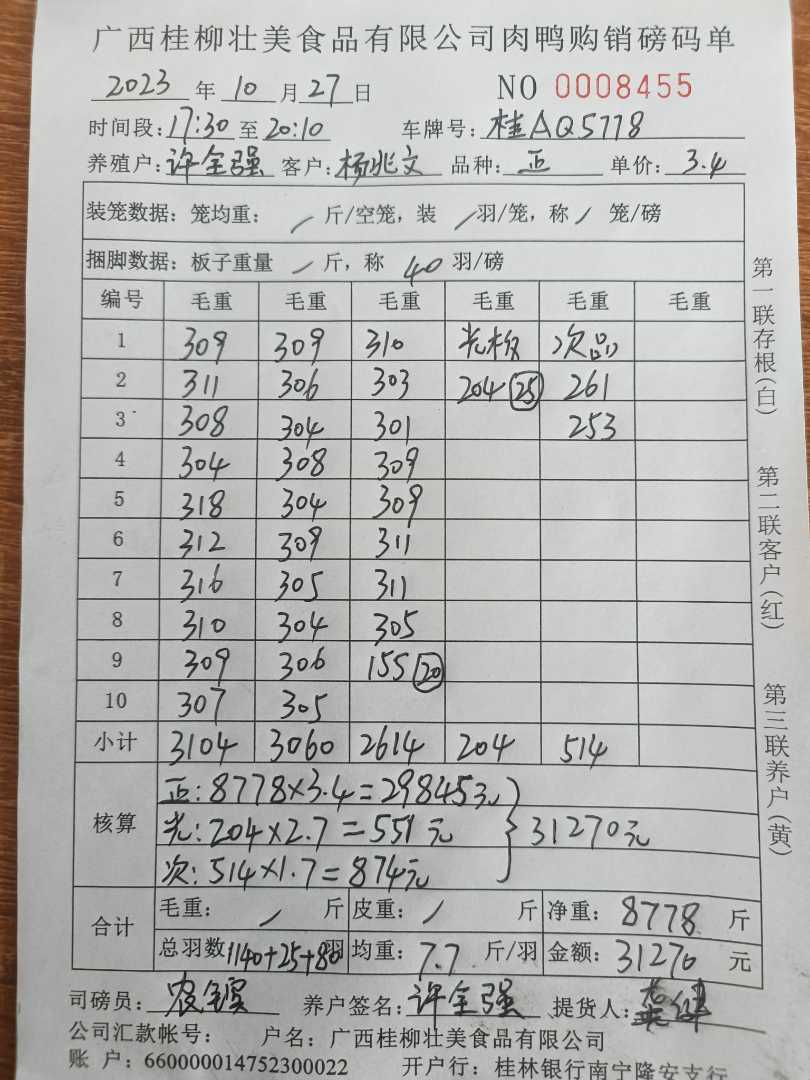 广西桂柳壮美食品有限公司肉鸭购销磅码单
2023 年 10 月 27 日 NO 0008455
时间段: 17:30 至 20:10 车牌号: 桂AQ5778
养殖户: 许全强 客户: 杨兆文 品种: 正 单价: 3.4
装笼数据: 笼均重: / 斤/空笼, 装 / 羽/笼, 称 / 笼/磅
捆脚数据: 板子重量 / 斤, 称 40 羽/磅
编号 毛重 毛重 毛重 毛重 毛重 毛重
1 309 309 310 光板 次品
2 311 306 303 204 (25) 261
3 308 304 301 253
4 304 308 309
5 318 304 309
6 312 309 311
7 316 305 311
8 310 304 305
9 309 306 155 (20)
10 307 305
小计 3104 3060 2614 204 514
核算
正: 8778×3.4=29845元
光: 204×2.7=551元 } 31270元
次: 514×1.7=874元
合计
毛重: / 斤 皮重: / 斤 净重: 8778 斤
总羽数 1140+25+80 羽 均重: 7.7 斤/羽 金额: 31270 元
司磅员: 养户签名: 许全强 提货人:
公司汇款帐号: 户名: 广西桂柳壮美食品有限公司
账 户: 660000014752300022 开户行: 桂林银行南宁隆安支行
第一联存根(白)
第二联客户(红)
第三联养户(黄)